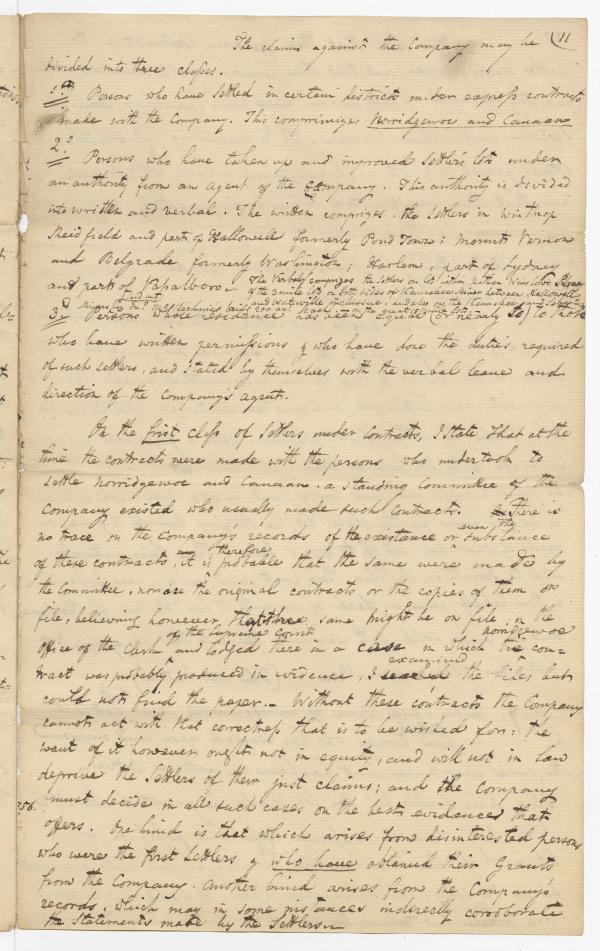 11
The claims against the Company may be
divided into three classes.
1st Persons who have settled in certain districts under express contracts
made with the Company. This comprimizes Norridgewoc and Canaan
2.o
Persons who have taken up and improved settlers lots under
an authority from an agent of the Company. This authority is divided
into written and verbal. The written comprizes the settlers in Winthrop
Readfield and part of Hallowell formerly Pond Town: Mount Vernon
and Belgrade formerly Washington; Harlem, part of Sydney
and part of Vassalboro. The Verbal comprizes the settlers on
on both sides of Kennebec River between Hallowell
and Waterville inclusive; and also on the
3.d Persons whose residence has been equal (or nearly so) to those
who have written permissions & who have done the duties required
of such settlers, and stated by themselves with the verbal leave and
direction of the Company's agent.
On the first class of settlers under contracts, I state that at the
time the contracts were made with the persons who undertook to
settle Norridgewoc and Canaan, a standing Committee of the
Company existed who usually made such contracts. There is
no trace on the Company's records of the existance or even the substance
of these contracts, it is therefore probable that the same were made by
the Committee, nor are the original contracts or the copies of them on
file, believing however that the same might be on file in the
office of the Clerk of the Supreme Court and lodged there in a case in which the Norridgewoc con-
tract was probably produced in evidence, I examined the files but
could not find the paper.— Without these contracts the Company
cannot act with that correctness that is to be wished for: the
want of it however ought not in equity, and will not in law
deprive the Settlers of their just claims; and the Company
must decide in all such cases on the best evidence that
offers. One kind is that which arises from disinterested persons
who were the first settlers & who have obtained their Grants
from the Company. Another kind arises from the Company's
records, which may in some instances indirectly corroborate
the statements made by the Settlers.—